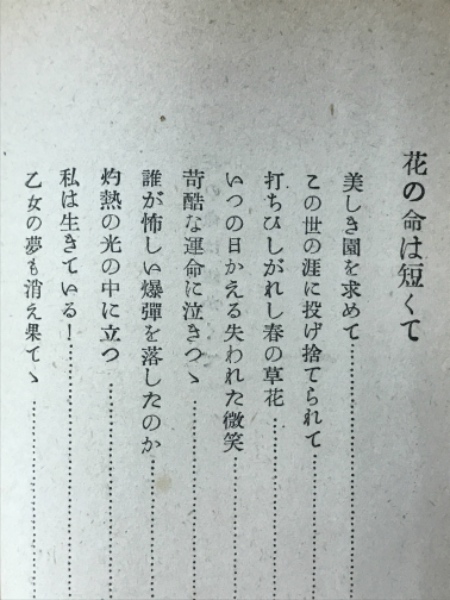 花の命は短くて
美しき園を求めて
この世の涯に投げ捨てられて
打ちひしがれし春の草花
いつの日かえる失われた微笑
苛酷な運命に泣きつゝ
誰が怖しい爆彈を落したのか
灼熱の光の中に立つ
私は生きている!
乙女の夢も消え果てゝ